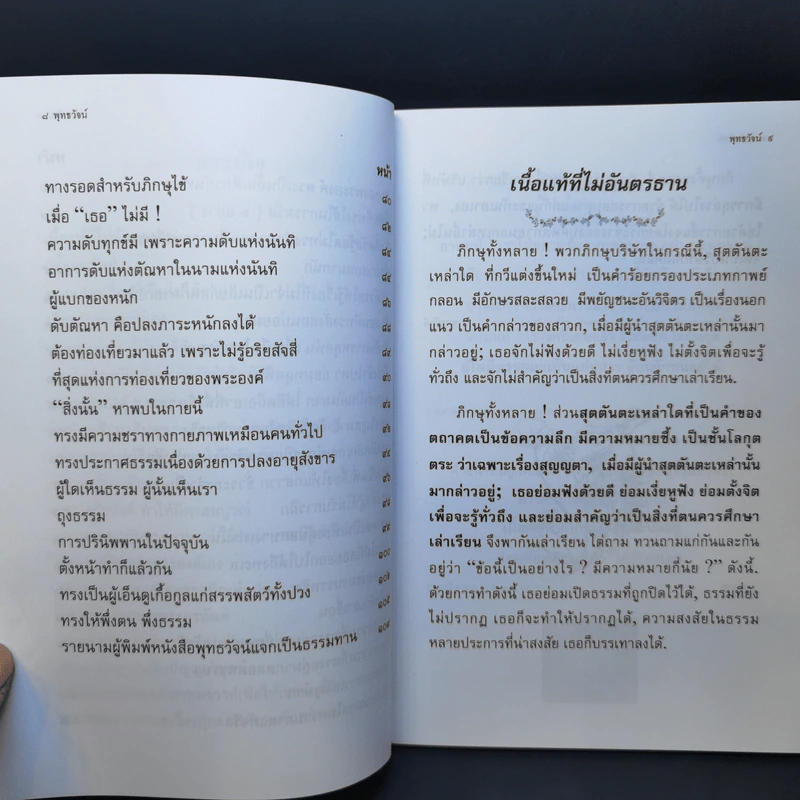 ๘ พุทธวัจน์
หน้า
ทางรอดสำหรับภิกษุไข้ ๘๐
เมื่อ “เธอ” ไม่มี ! ๘๒
ความดับทุกข์มี เพราะความดับแห่งนันทิ
อาการดับแห่งตัณหาในนามแห่งนันทิ
ผู้แบกของหนัก
ดับตัณหา คือปลงภาระหนักลงได้
ต้องท่องเที่ยวมาแล้ว เพราะไม่รู้อริยสัจสี่
ที่สุดแห่งการท่องเที่ยวของพระองค์ ๙๐
“สิ่งนั้น” หาพบในกายนี้
ทรงมีความชราทางกายภาพเหมือนคนทั่วไป
ทรงประกาศธรรมเนื่องด้วยการปลงอายุสังขาร
ผู้ใดเห็นธรรม ผู้นั้นเห็นเรา
ถุงธรรม
การปรินิพพานในปัจจุบัน
ตั้งหน้าทำก็แล้วกัน ๑๐๐
ทรงเป็นผู้เอ็นดูเกื้อกูลแก่สรรพสัตว์ทั้งปวง
ทรงให้พึ่งตน พึ่งธรรม
รายนามผู้พิมพ์หนังสือพุทธวัจน์แจกเป็นธรรมทาน
พุทธวัจน์ ๙
เนื้อแท้ที่ไม่อันตรธาน
ภิกษุทั้งหลาย ! พวกภิกษุบริษัทในกรณีนี้, สุตตันตะ
เหล่าใด ที่กวีแต่งขึ้นใหม่ เป็นคำร้อยกรองประเภทกาพย์
กลอน มีอักษรสละสลวย มีพยัญชนะอันวิจิตร เป็นเรื่องนอก
แนว เป็นคำกล่าวของสาวก, เมื่อมีผู้นำสุตตันตะเหล่านั้นมา
กล่าวอยู่; เธอจักไม่ฟังด้วยดี ไม่เงี่ยหูฟัง ไม่ตั้งจิตเพื่อจะรู้
ทั่วถึง และจักไม่สำคัญว่าเป็นสิ่งที่ตนควรศึกษาเล่าเรียน.
ภิกษุทั้งหลาย ! ส่วนสุตตันตะเหล่าใดที่เป็นคำของ
ตถาคตเป็นข้อความลึก มีความหมายซึ้ง เป็นชั้นโลกุต
ตระ ว่าเฉพาะเรื่องสุญญตา, เมื่อมีผู้นำสุตตันตะเหล่านั้น
มากล่าวอยู่; เธอย่อมฟังด้วยดี ย่อมเงี่ยหูฟัง ย่อมตั้งจิต
เพื่อจะรู้ทั่วถึง และย่อมสำคัญว่าเป็นสิ่งที่ตนควรศึกษา
เล่าเรียน จึงพากันเล่าเรียน ไต่ถาม ทวนถามแก่กันและกัน
อยู่ว่า “ข้อนี้เป็นอย่างไร ? มีความหมายกี่นัย ?” ดังนี้.
ด้วยการทำดังนี้ เธอย่อมเปิดธรรมที่ถูกปิดไว้ได้, ธรรมที่ยัง
ไม่ปรากฏ เธอก็จะทำให้ปรากฏได้, ความสงสัยในธรรม
หลายประการที่น่าสงสัย เธอก็บรรเทาลงได้.